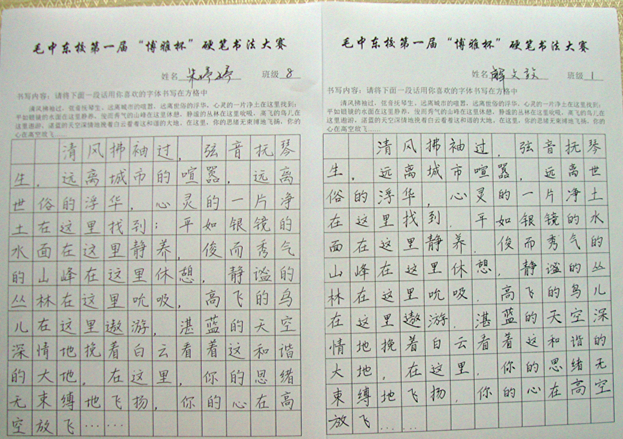 毛中东校第一届“博雅杯”硬笔书法大赛
姓名 班级 8
书写内容：请将下面一段话用你喜欢的字体书写在方格中
清风拂袖过，弦音抚琴生，远离城市的喧嚣，远离世俗的浮华，心灵的一片净土在这里找到：
平如银镜的水面在这里静养，俊而秀气的山峰在这里休想，静谧的丛林在这里吮吸，高飞的鸟儿
在这里遨游，湛蓝的天空深情地挽着白云看着这和谐的大地，在这里，你的思绪无束缚地飞扬，你的
心在高空放飞……
清风拂袖过，弦音抚琴
生，远离城市的喧嚣，远离
世俗的浮华，心灵的一片净
土在这里找到：平如银镜的
水面在这里静养，俊而秀气
的山峰在这里休想，静谧的
丛林在这里吮吸，高飞的鸟
儿在这里遨游，湛蓝的天空
深情地挽着白云看着这和谐
的大地，在这里，你的思绪
无束缚地飞扬，你的心在高
空放飞……
毛中东校第一届“博雅杯”硬笔书法大赛
姓名 班级 1
书写内容：请将下面一段话用你喜欢的字体书写在方格中
清风拂袖过，弦音抚琴生，远离城市的喧嚣，远离世俗的浮华，心灵的一片净土在这里找到：
平如银镜的水面在这里静养，俊而秀气的山峰在这里休想，静谧的丛林在这里吮吸，高飞的鸟儿
在这里遨游，湛蓝的天空深情地挽着白云看着这和谐的大地，在这里，你的思绪无束缚地飞扬，你的
心在高空放飞……
清风拂袖过，弦音抚琴
生，远离城市的喧嚣，远离世
俗的浮华，心灵的一片净土
在这里找到 平如银镜的水
面在这里静养，俊而秀气的
山峰在这里休想，静谧的丛
林在这里吮吸．高飞的鸟儿
在这里遨游．湛蓝的天空深
情地挽着白云看着这和谐的
大地，在这里．你的思绪无
束缚地飞扬，你的心在高空
放飞……